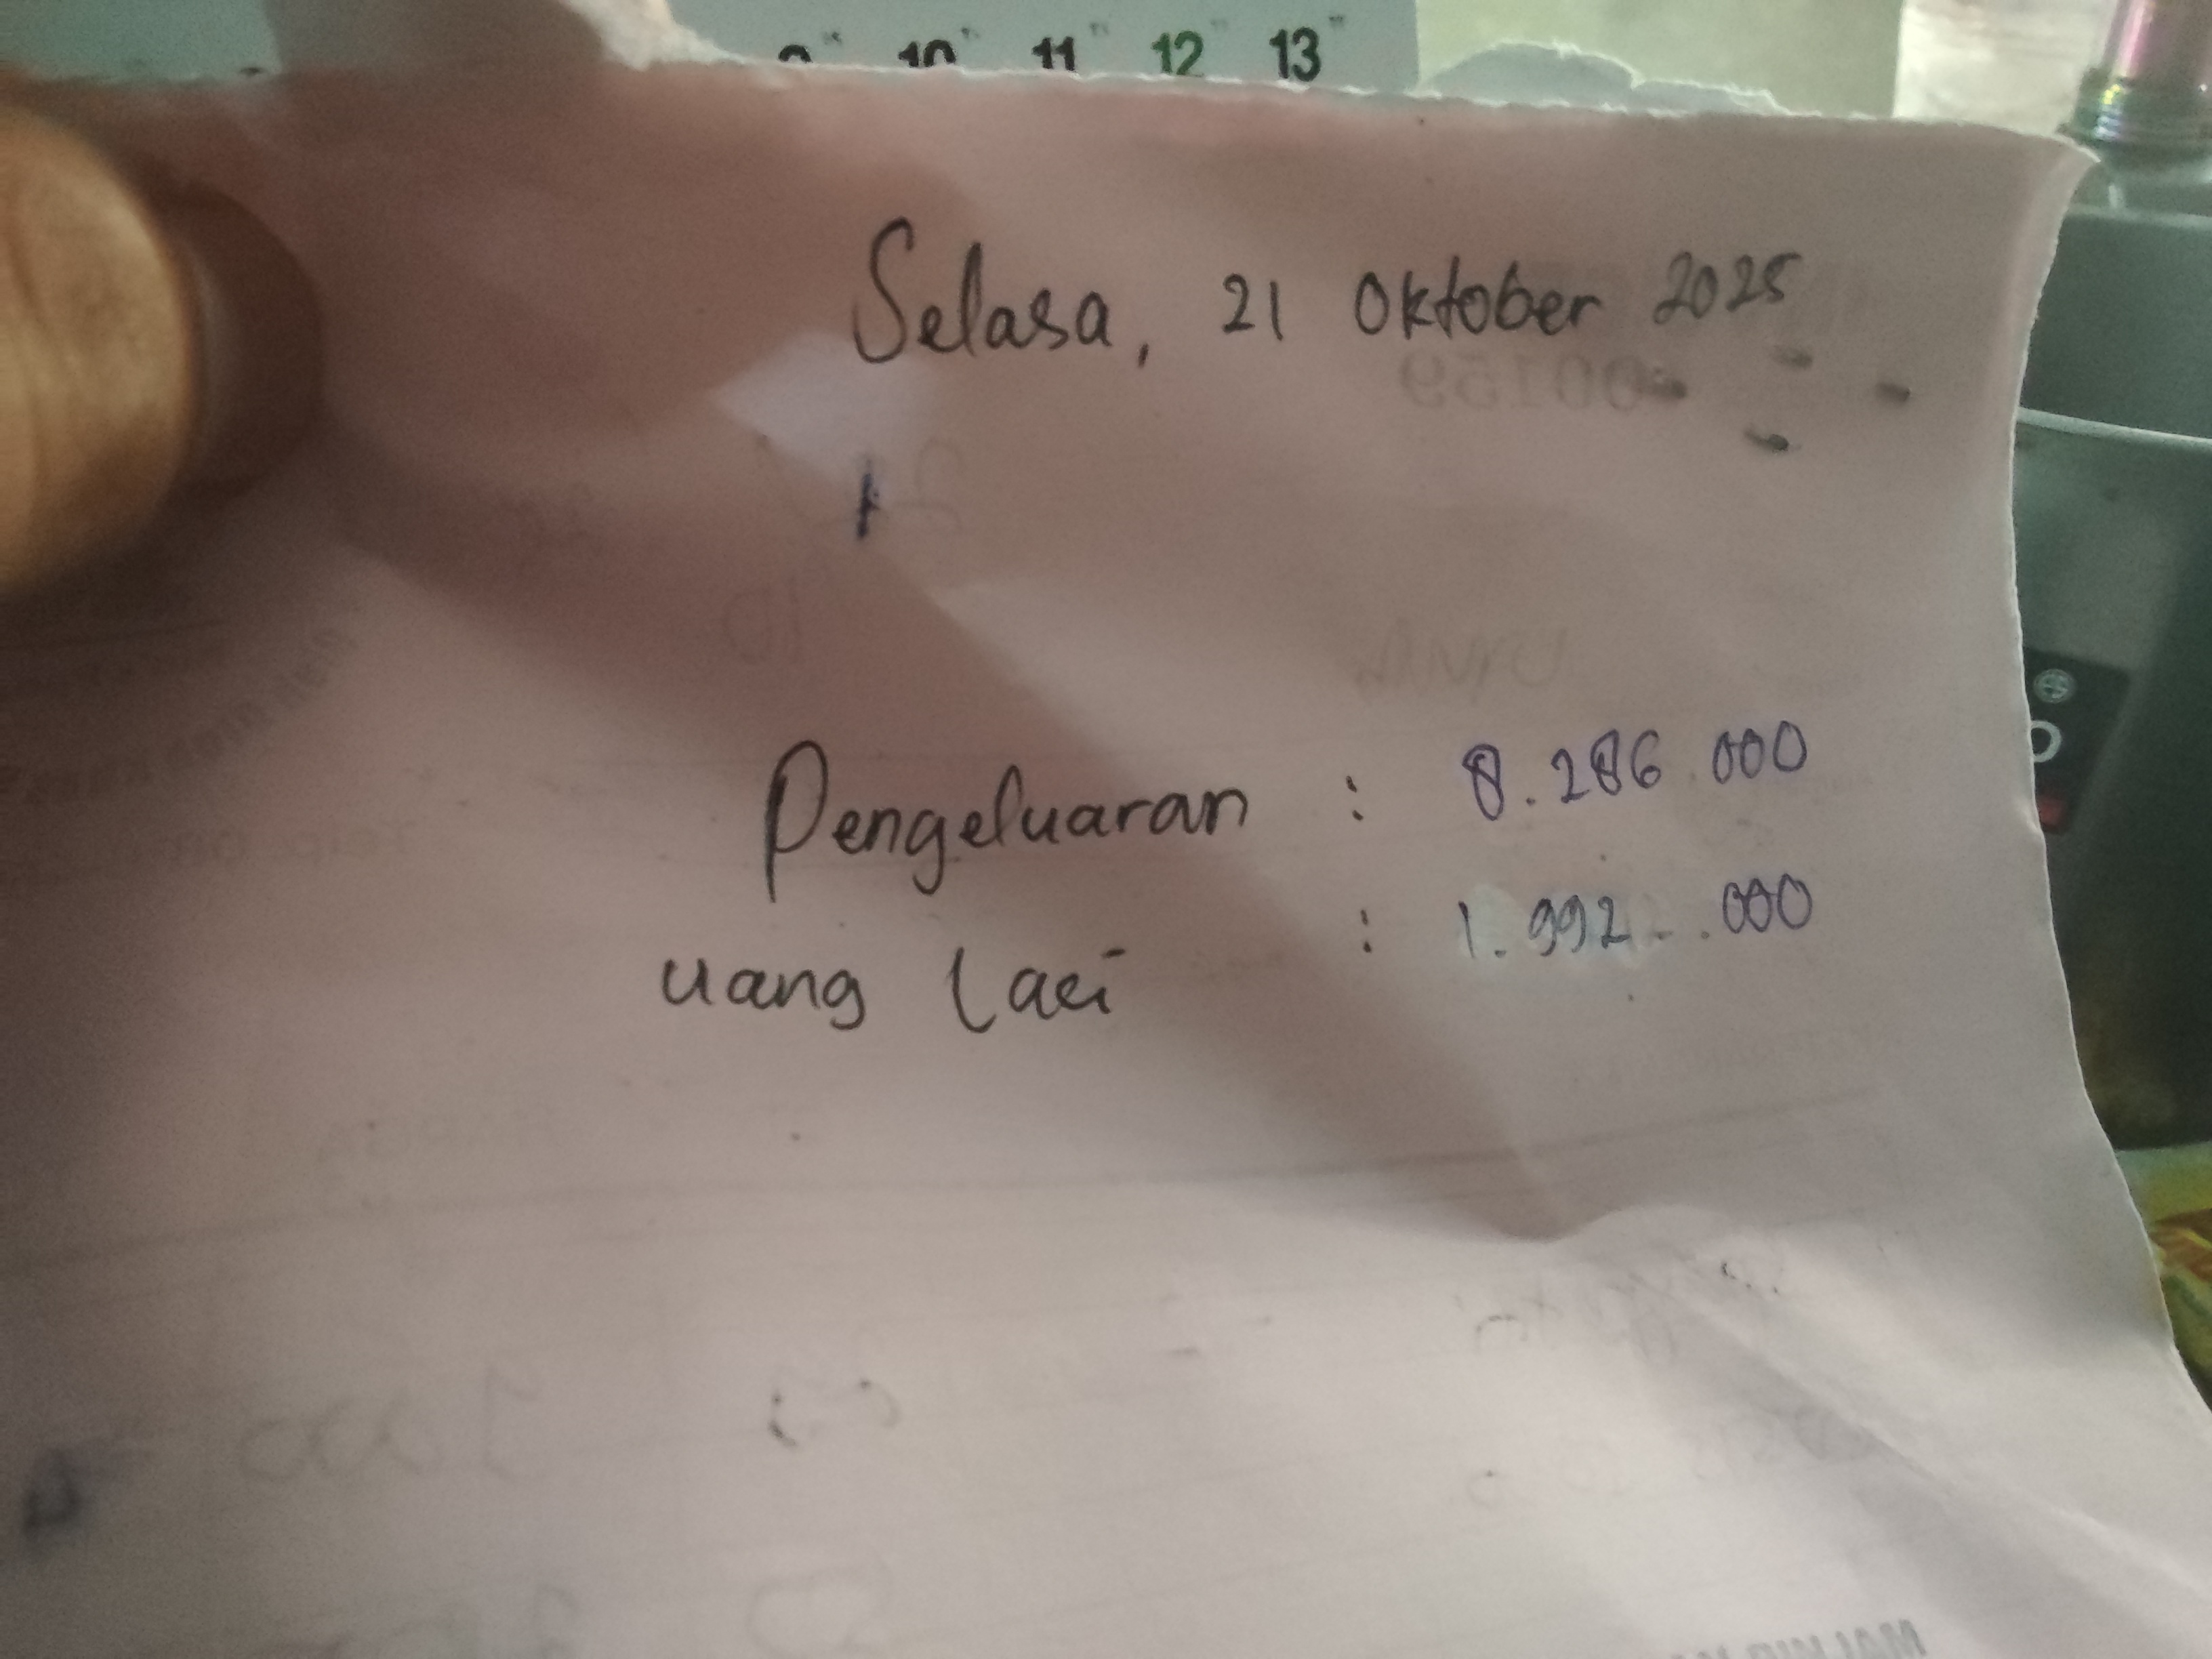 10 11 12 13
Selasa, 21 Oktober 2025
Pengeluaran : 8.286.000
uang laci : 1.992.000